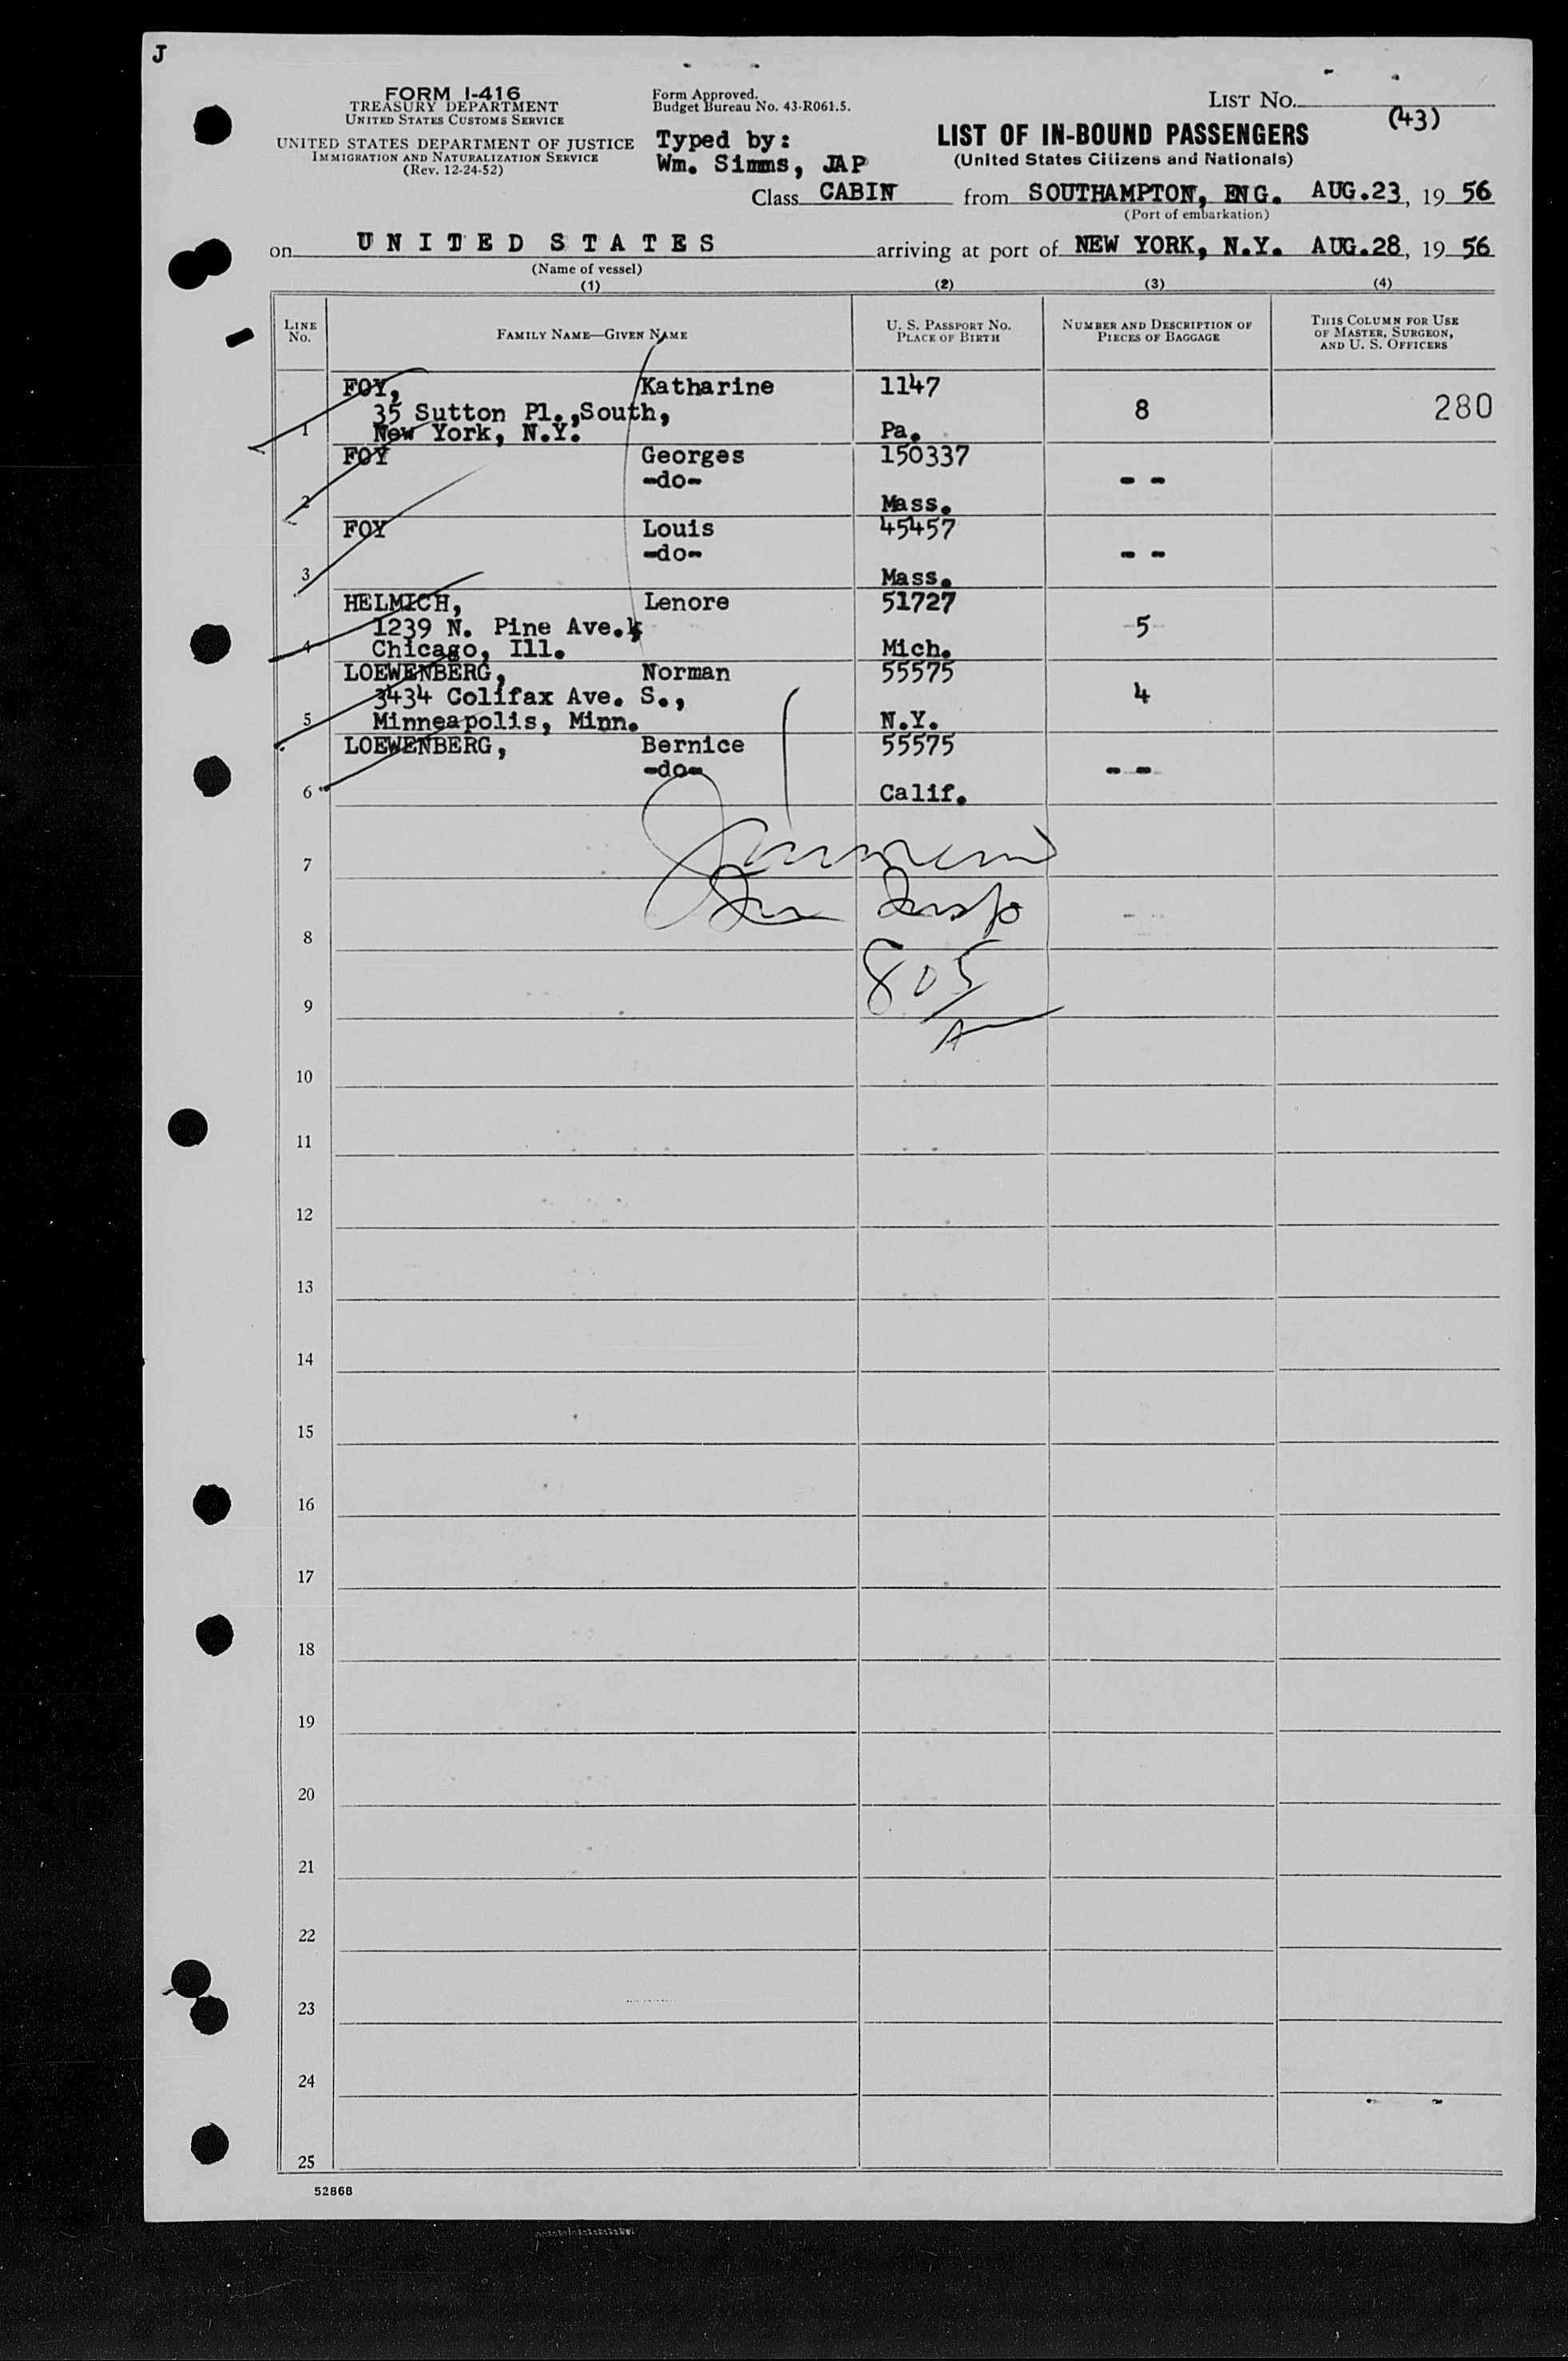 J
FORM I-416
TREASURY DEPARTMENT
UNITED STATES CUSTOMS SERVICE
UNITED STATES DEPARTMENT OF JUSTICE
IMMIGRATION AND NATURALIZATION SERVICE
(Rev. 12-24-52)
Form Approved.
Budget Bureau No. 43-R061.5.
Typed by:
Wm. Simms, JAP
LIST NO.
(43)
LIST OF IN-BOUND PASSENGERS
(United States Citizens and Nationals)
Class CABIN from SOUTHAMPTON, ENG. AUG.23, 19 56
(Port of embarkation)
on UNITED STATES arriving at port of NEW YORK, N.Y. AUG.28, 19 56
(Name of vessel)
(1) (2) (3) (4)
LINE NO. FAMILY NAME—GIVEN NAME U. S. PASSPORT NO. PLACE OF BIRTH NUMBER AND DESCRIPTION OF PIECES OF BAGGAGE THIS COLUMN FOR USE OF MASTER, SURGEON, AND U. S. OFFICERS
FOY, Katharine 1147
35 Sutton Pl.,South, 8 280
1 New York, N.Y. Pa.
FOY Georges 150337
-do- - -
2 Mass.
FOY Louis 45457
-do- - -
3 Mass.
HELMICH, Lenore 51727
1239 N. Pine Ave. 5
4 Chicago, Ill. Mich.
LOEWENBERG, Norman 55575
3434 Colifax Ave. S., 4
5 Minneapolis, Minn. N.Y.
LOEWENBERG, Bernice 55575
-do- - -
6 Calif.
7
8
805
9
10
11
12
13
14
15
16
17
18
19
20
21
22
23
24
25
52868